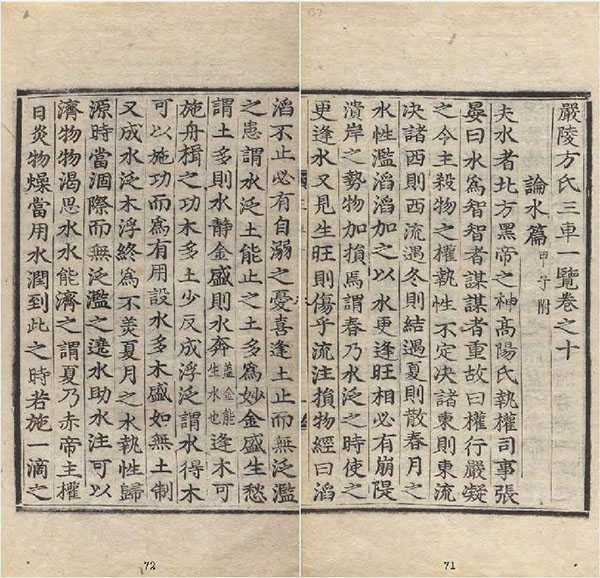 嚴陵方氏三車一覽卷之十
論水篇 甲子附
夫水者北方黑帝之神高陽氏執權司事張
晏曰水爲智智者謀謀者重故曰權行嚴凝
之令主殺物之權執性不定決諸東則東流
決諸西則西流遇冬則結遇夏則散春月之
水性濫滔滔加之以水更逢旺相必有崩隄
潰岸之勢物加損焉謂春乃水泛之時使之
更逢水又見生旺則傷乎流注損物經曰滔
71
滔不止必有自溺之憂喜逢土止而無泛濫
之患謂水泛土能止之土多爲妙金盛生愁
謂土多則水靜金盛則水奔蓋金能生水也逢木可
施舟楫之功木多土少反成浮泛謂水得木
可以施功而爲有用設水多木盛如無土制
又成水泛木浮終爲不美夏月之水執性歸
源時當涸際而無泛濫之遶水助水注可以
濟物物渴思水水能濟之謂夏乃赤帝主權
日炎物燥當用水潤到此之時若施一滴之
72